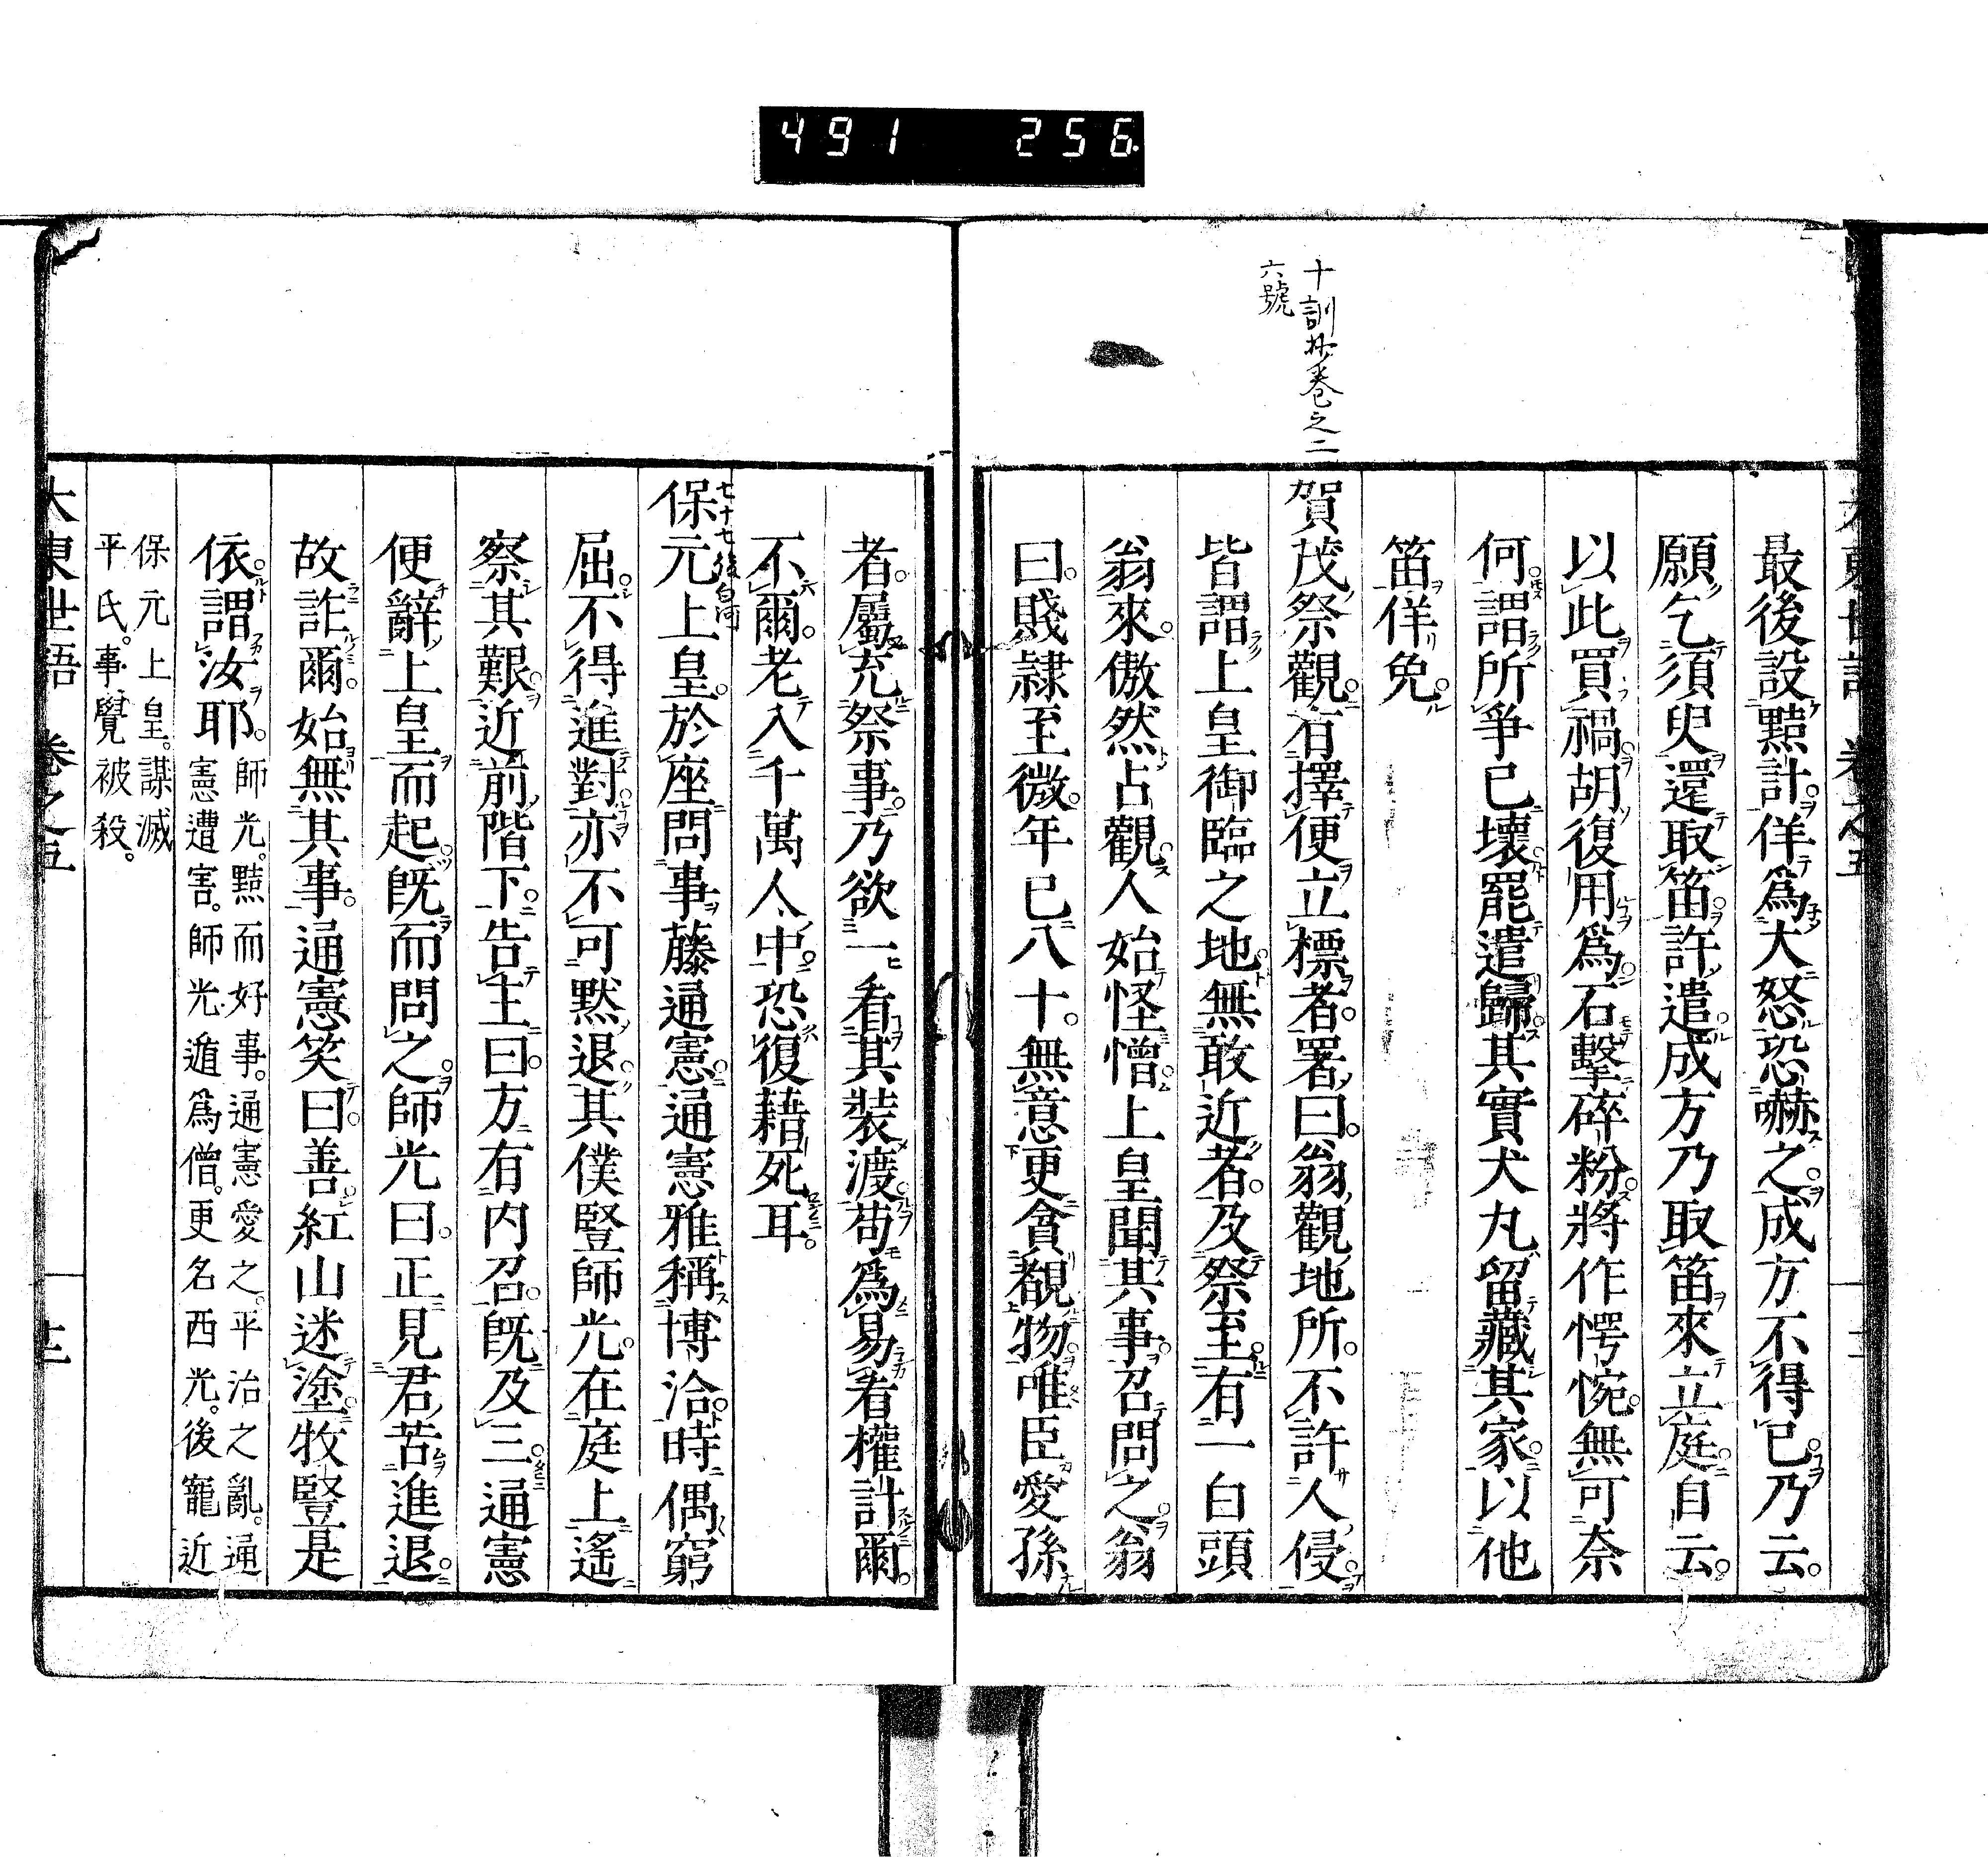 491 256
十訓抄卷之二
六號
最後設黠計。佯爲大怒恐嚇之。成方不得已。乃云。
願乞須臾還取笛。許遣。成方乃取笛來立庭。自云。
以此買禍。胡復用爲。石擊碎粉。將作愕惋。無可奈
何。謂所爭已壞。罷遣歸。其實犬丸留藏其家。以他
笛佯免。
賀茂祭觀。有擇便立標者。署曰。翁觀地所。不許人侵。
皆謂上皇御臨之地。無敢近者。及祭至。有一白頭
翁來。傲然占觀。人始怪憎。上皇聞其事。召問之。翁
曰。賤隷至微。年已八十。無意更貪覩物。唯臣愛孫
者。屬充祭事。乃欲一看其裝渡。苟爲易看權計爾。
不爾。老入千萬人中。恐復藉死耳。
七十七後白河
保元上皇。於座問事藤通憲。通憲雅稱博洽。時偶窮
屈。不得進對。亦不可默退。其僕豎師光。在庭上遙
察其艱。近前階下。告主曰。方有内召。既及三。通憲
便辭上皇而起。既而問之。師光曰。正見君苦進退。
故詐爾。始無其事。通憲笑曰。善。紅山迷塗。牧豎是
依。謂汝耶。師光。黠而好事。通憲愛之。平治之亂。通
憲遭害。師光遁爲僧。更名西光。後寵近
保元上皇。謀滅
平氏。事覺被殺。
大東世語 卷之五